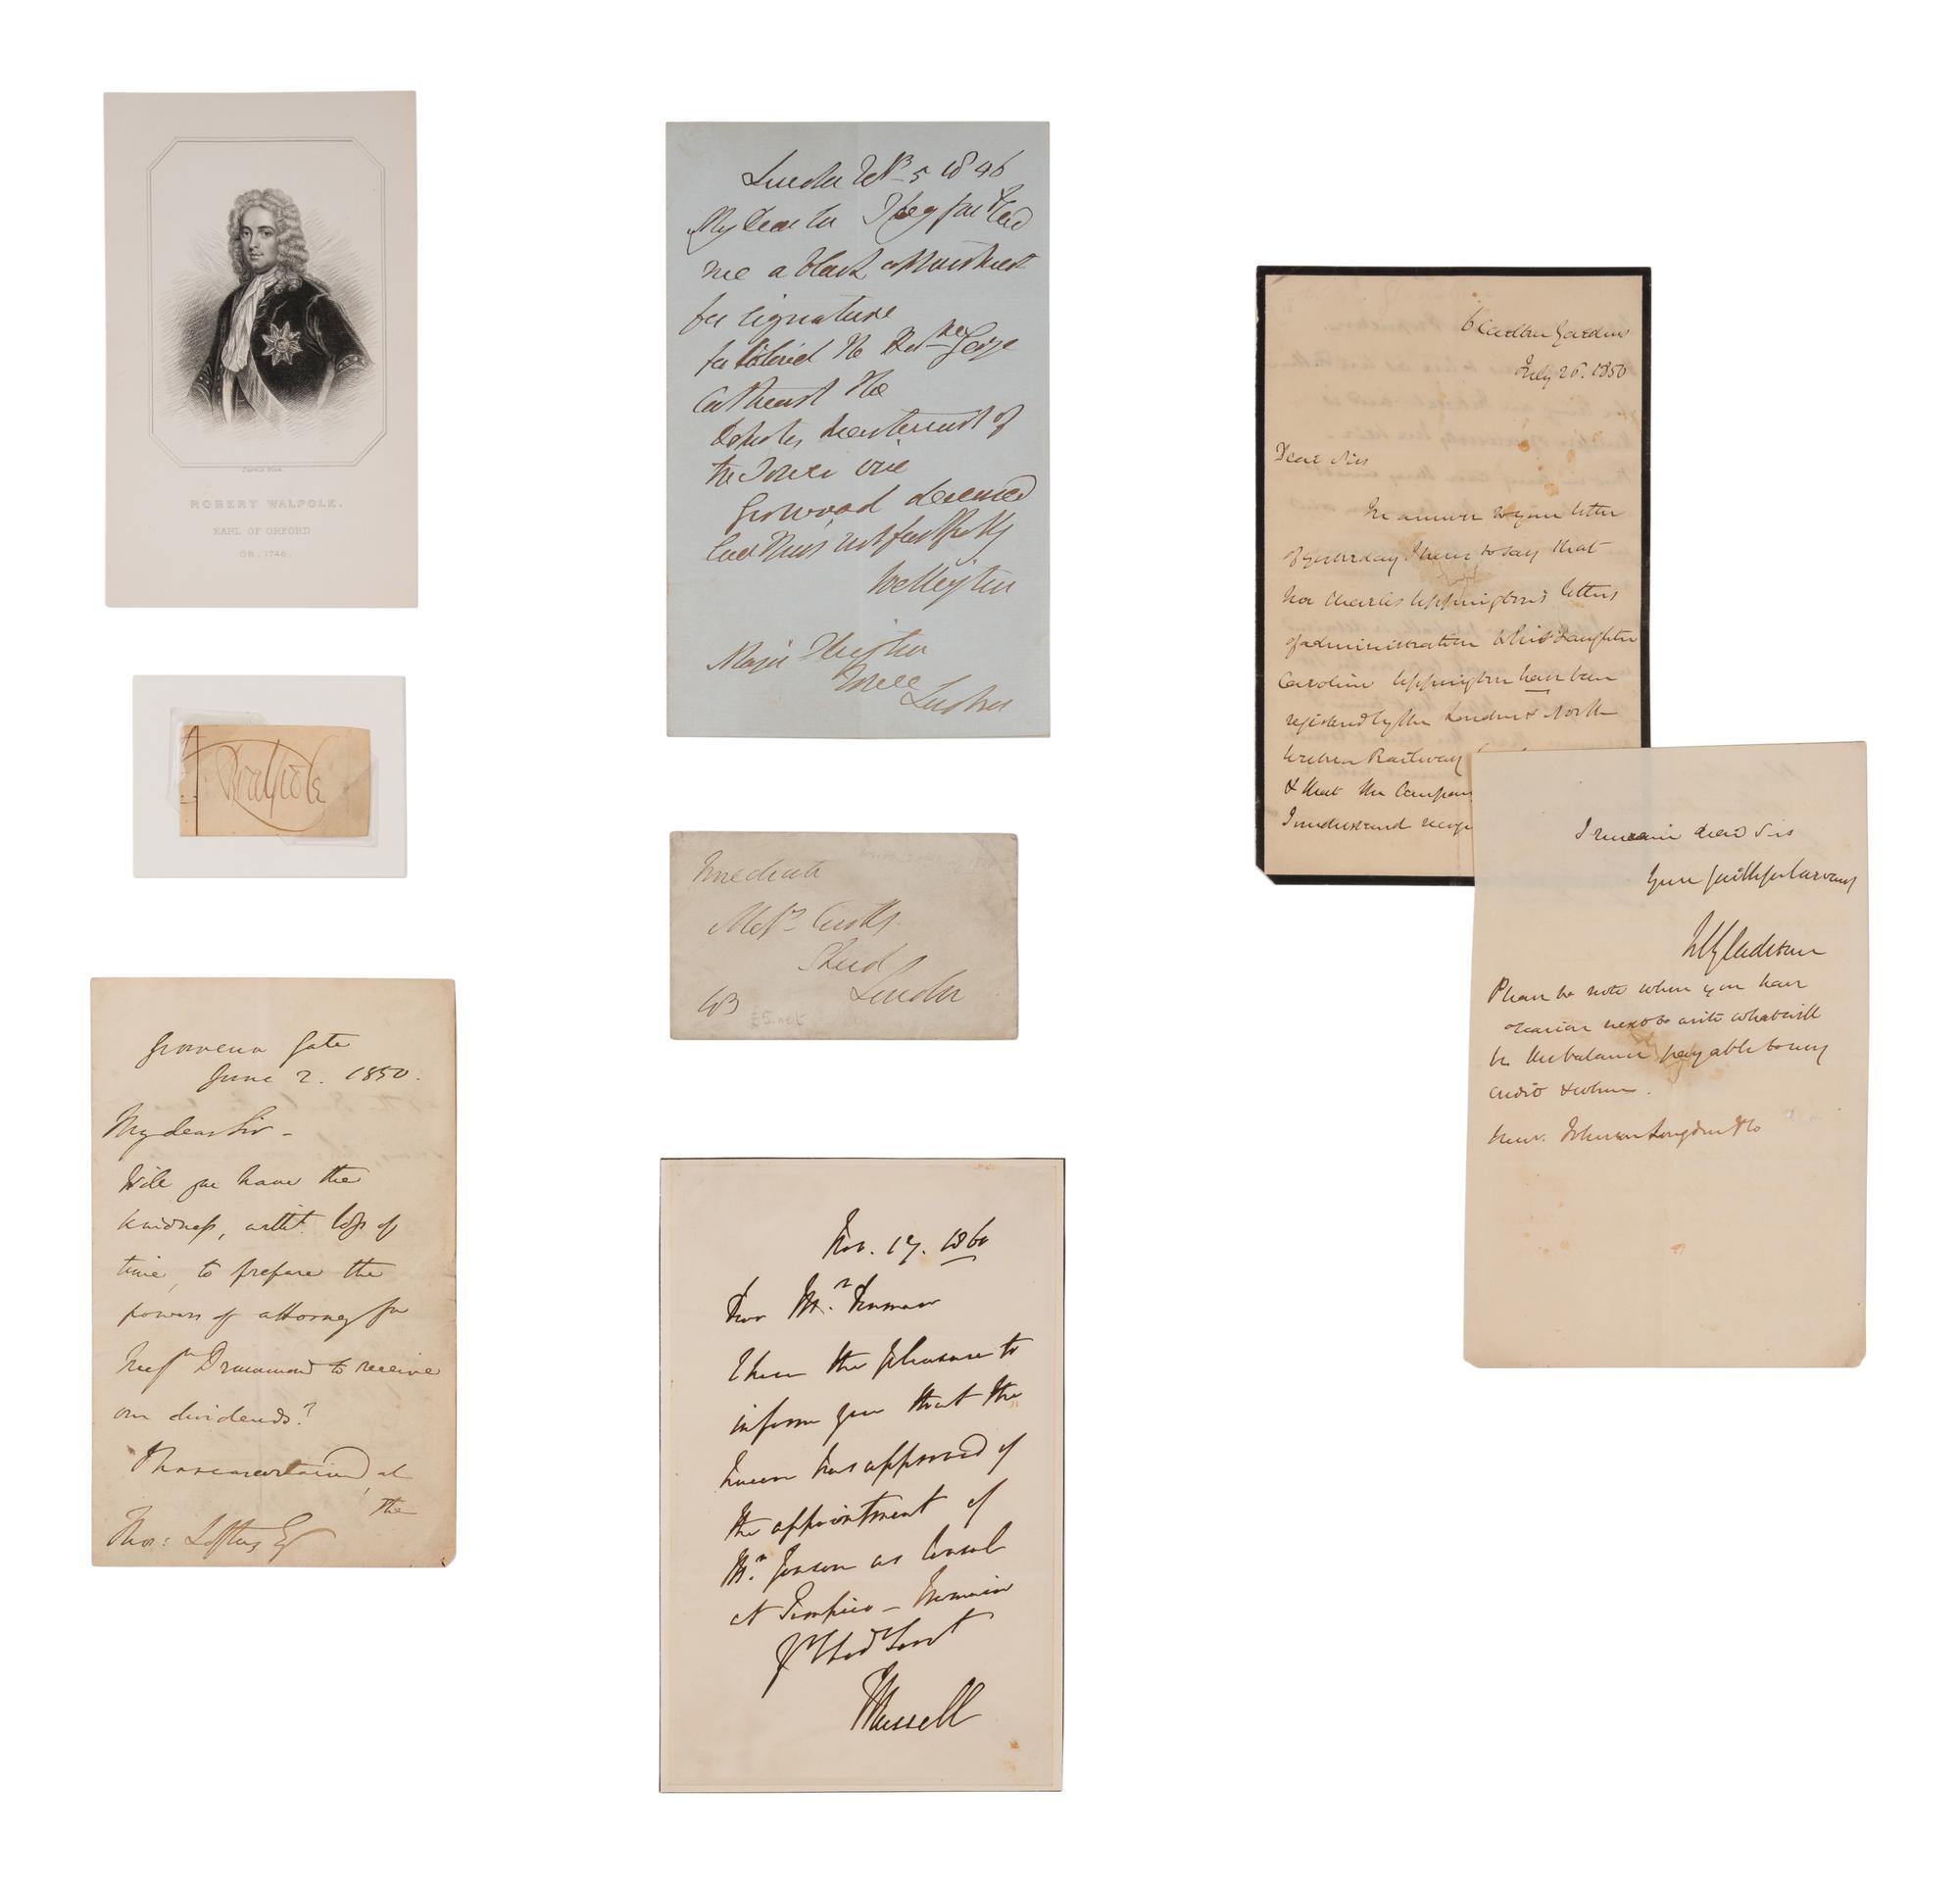 ROBERT WALPOLE.
EARL OF ORFORD
OB. 1746.
RWalpole
Grosvenor Gate
June 2. 1850.
My dear Sir -
Will you have the
kindness, witht. loss of
time, to prepare the
powers of attorney for
Messrs Drummond to receive
our dividends?
ascertained, at
the
Thos: Loftus Esq
London 5 1846
My Dear Sir I beg you to send
me a blank
for signature
Colonel the Honble George
Cathcart the
Deputy Lieutenant of
the Tower vice
Gurwood deceased
faithfully
Wellington
Major
Tower
London
Immediate
Messrs Coutts
Strand
London
Nov. 17. 1860
Dear Mr. 
I have the pleasure to
inform you that the
Queen has approved of
the appointment of
Mr. as Consul
at Tampico - I remain
Yr
Russell
6 Carlton Gardens
July 26. 1850
Dear Sirs
In answer to your letter
of yesterday I have to say that
Mr Charles Uppington's letters
of administration to his daughter
Caroline Uppington have been
registered by the London & North
Western Railway
& that the Company
I understand
I remain dear Sirs
Your faithful servant
WEGladstone
Please to note when you have
occasion next to write what will
be the balance payable to my
credit & when.
Messrs. Johnson Longden & Co